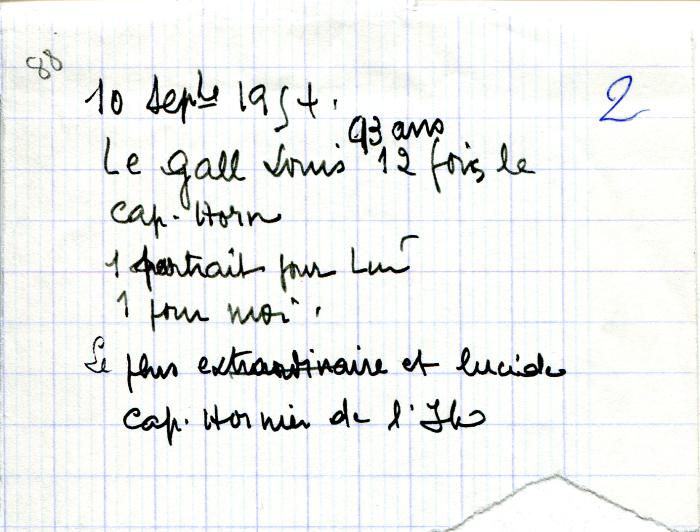 88
2
10 Septbre 195+.
93 ans
Le Gall Louis 12 fois le
Cap. Horn
1 portrait pour Lui
1 pour moi.
Le plus extraordinaire et lucide
Cap. Hornier de l'Ile